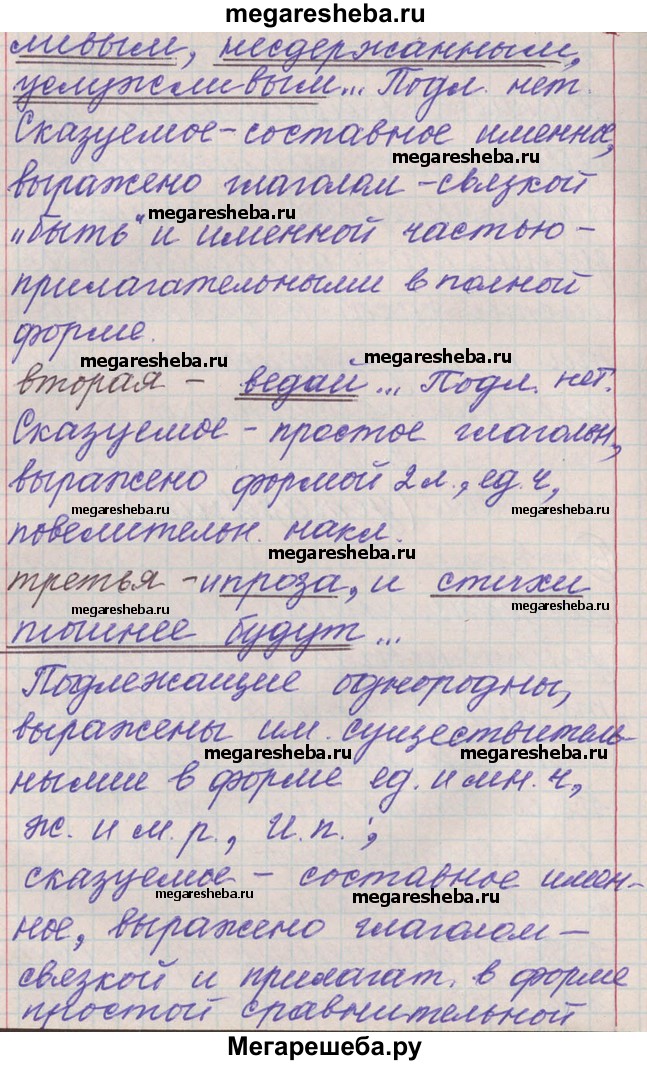 megaresheba.ru
ливым, несдержанным,
услужливым... Подл. нет.
Сказуемое - составное именное,
megaresheba.ru
выражено глаголом - связкой
megaresheba.ru
„быть" и именной частью -
прилагательными в полной
форме.
megaresheba.ru
megaresheba.ru
вторая - ведай... Подл. нет.
Сказуемое - простое глагольн.,
выражено формой 2 л., ед. ч,
megaresheba.ru
megaresheba.ru
повелительн. накл.
megaresheba.ru
третья - и проза, и стихи
megaresheba.ru
megaresheba.ru
пышнее будут...
Подлежащие однородны,
выражены им. существитель-
megaresheba.ru
megaresheba.ru
ными в форме ед. и мн. ч,
ж. и м. р., И. п. ;
сказуемое - составное имен-
megaresheba.ru
megaresheba.ru
ное, выражено глаголом -
связкой и прилагат. в форме
простой сравнительной
Мегарешеба.ру